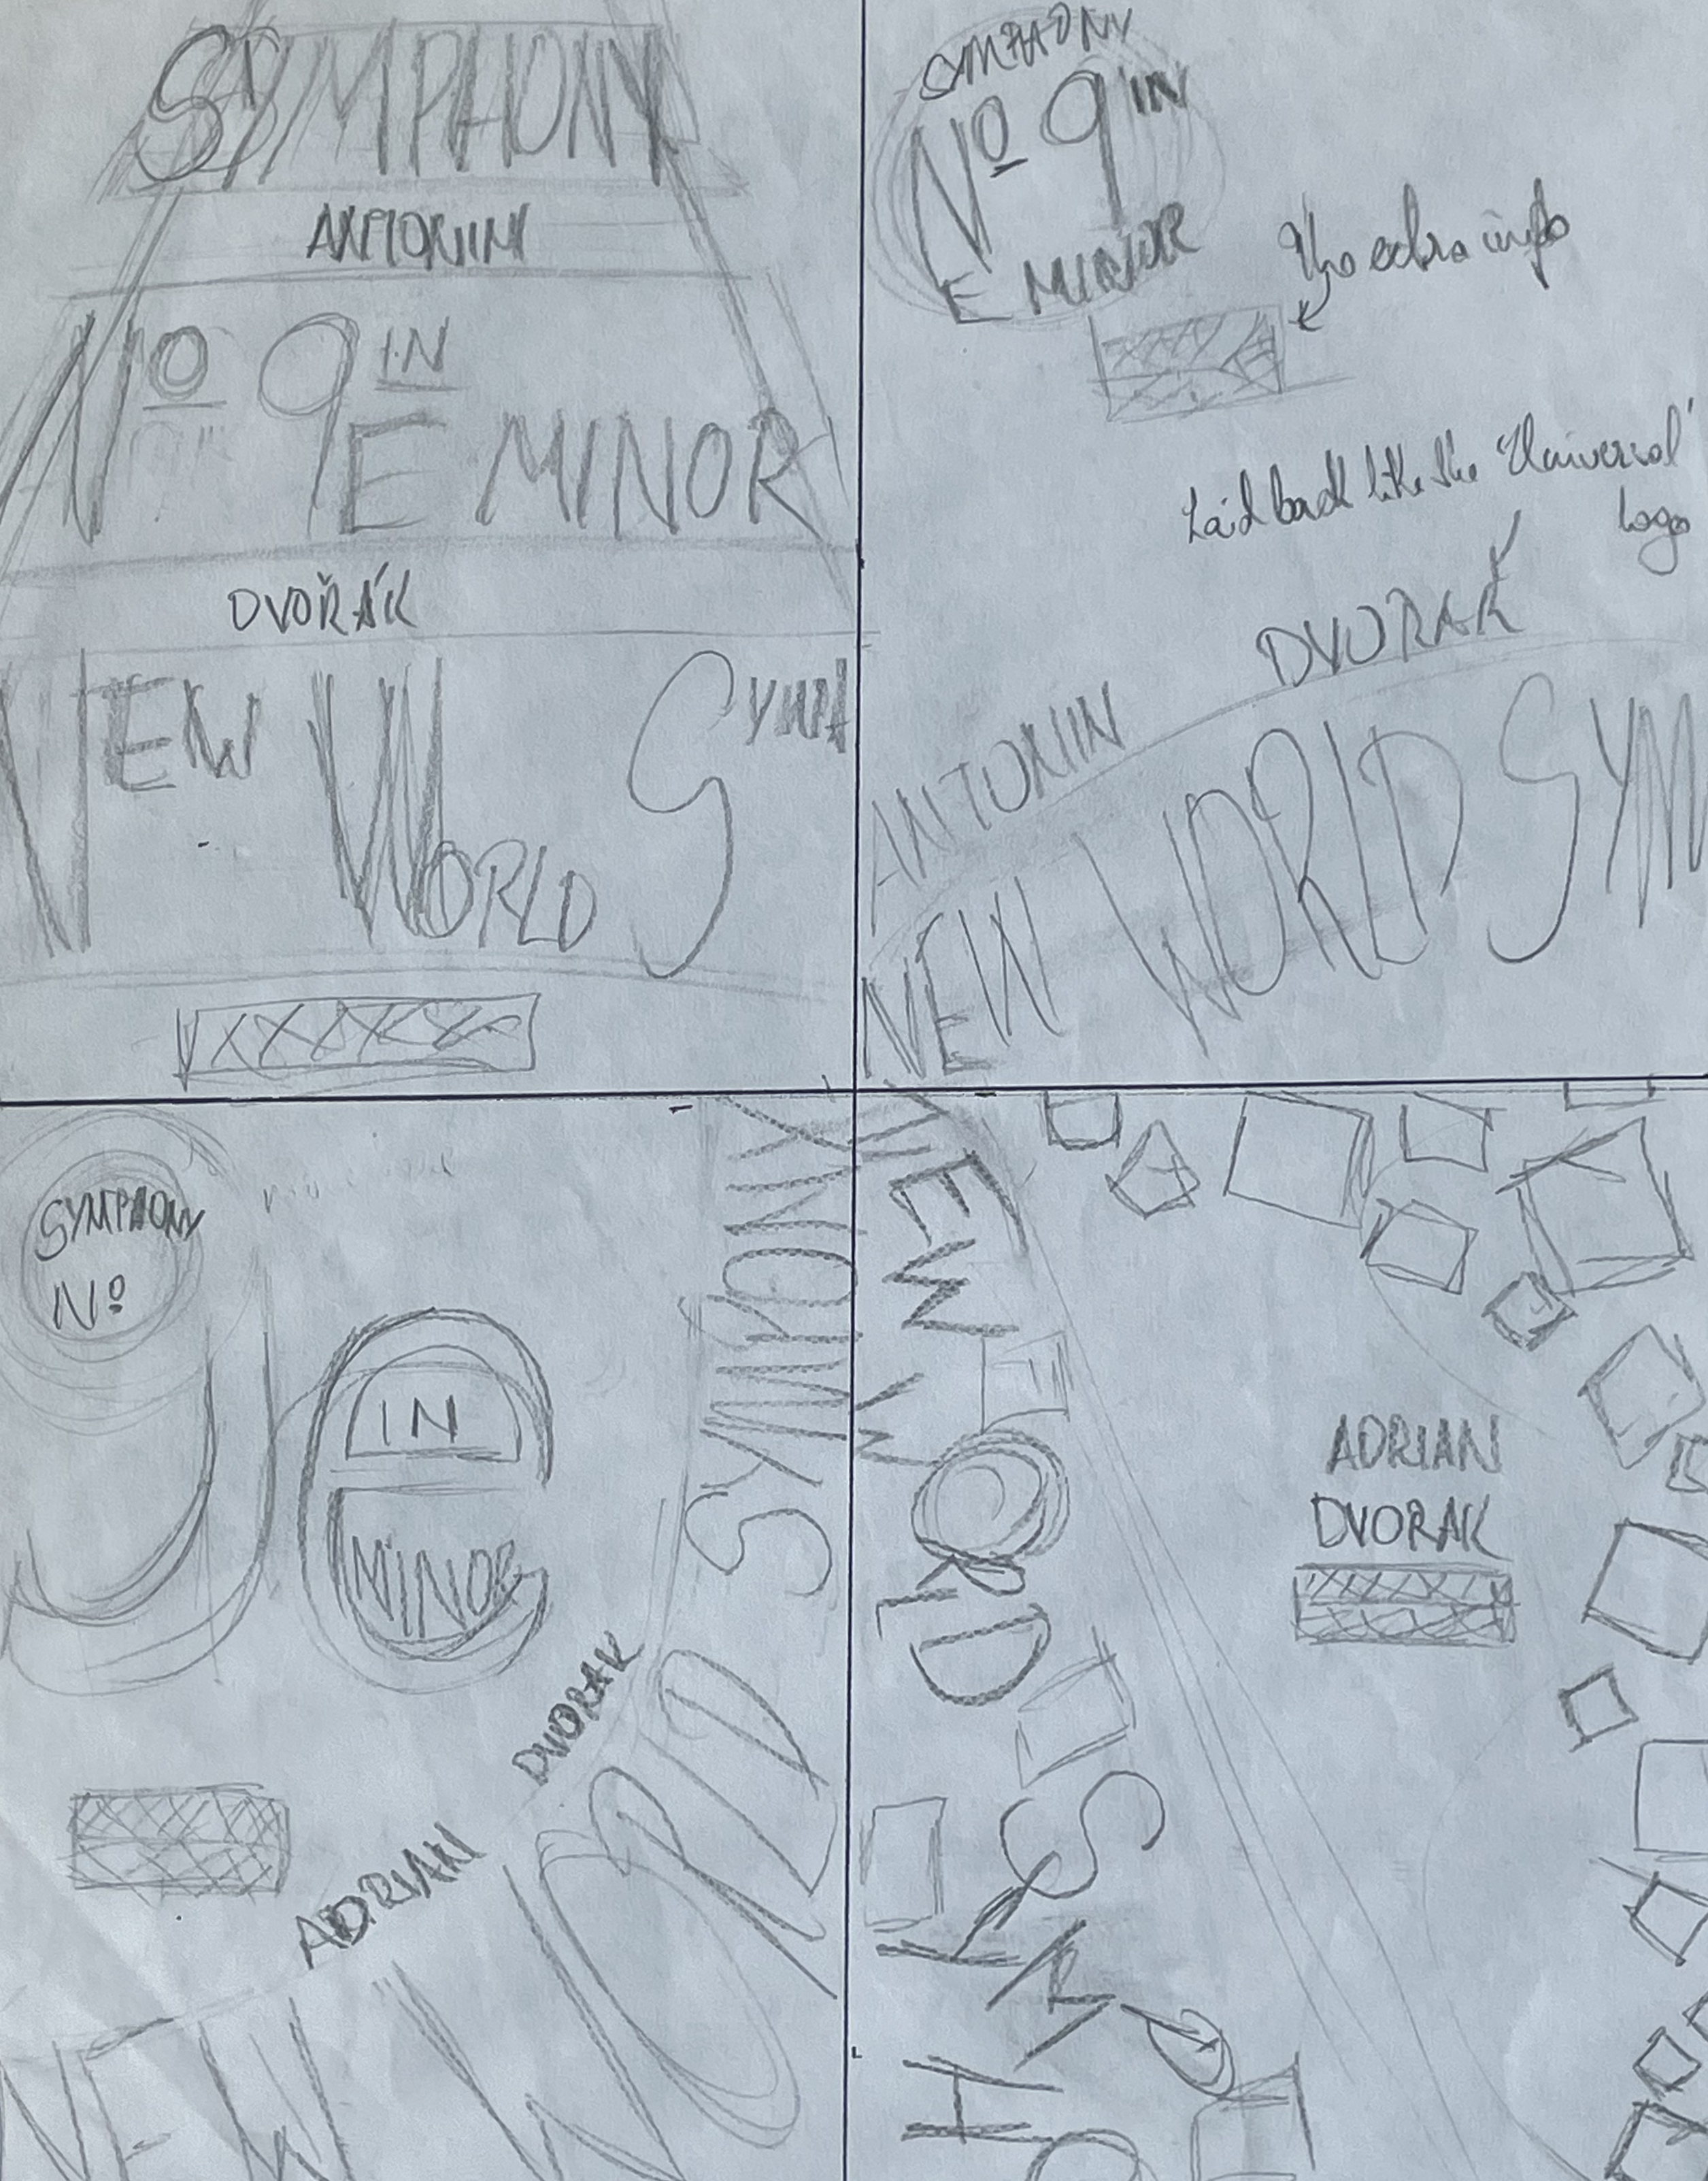 SYMPHONY
ANTONIN
Nº 9 IN
E MINOR
DVOŘÁK
NEW WORLD SYM
SYMPHONY
Nº 9 IN
E MINOR
The extra info
Laid back like the 'Universal'
logo
ANTONIN DVORAK
NEW WORLD SYM
SYMPHONY
Nº
9 e
IN
MINOR
SYMPHONY
ADRIAN DVORAK
NEW WORLD
NEW WORD SYMPHO
ADRIAN
DVORAK